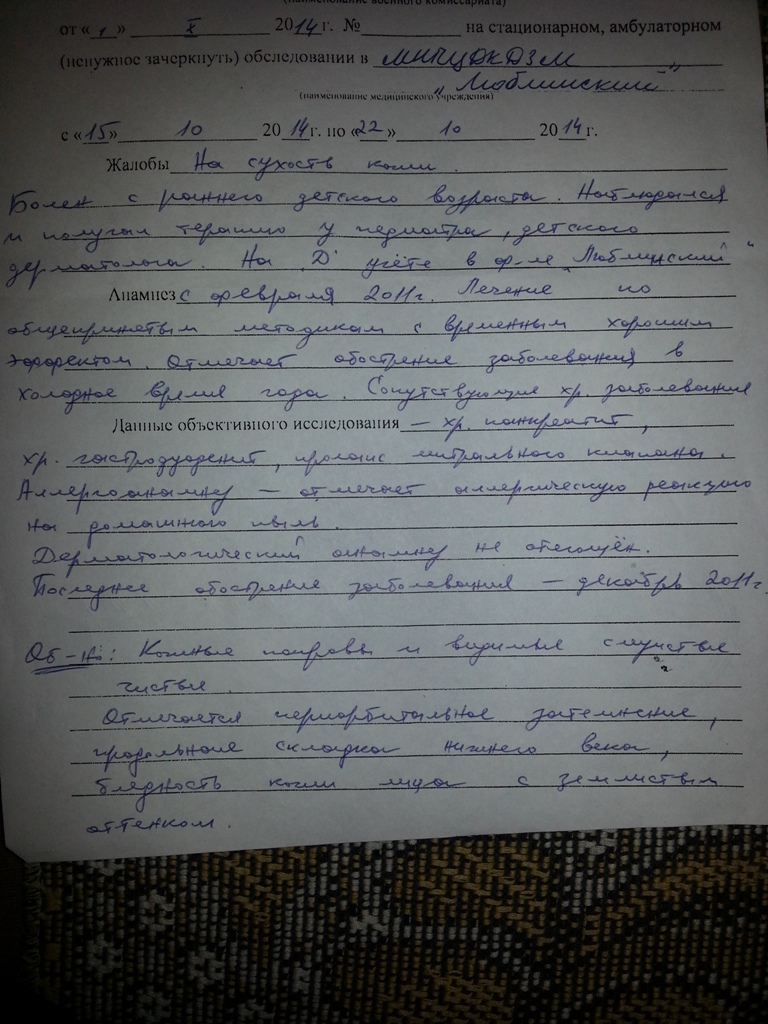 (наименование военного комиссариата)
от «1» X 2014 г. № на стационарном, амбулаторном
(ненужное зачеркнуть) обследовании в МНПЦДКДЗМ
"Люблинский"
(наименование медицинского учреждения)
с «15» 10 2014 г. по «22» 10 2014 г.
Жалобы На сухость кожи.
Болен с раннего детского возраста. Наблюдался
и получал терапию у педиатра, детского
дерматолога. На "Д" учёте в ф-ле "Люблинский"
Анамнез с февраля 2011г. Лечение по
общепринятым методикам с временным хорошим
эффектом. Отмечает обострение заболевания в
холодное время года. Сопутствующие хр. заболевания
Данные объективного исследования – хр. панкреатит,
хр. гастродуоденит, пролапс митрального клапана.
Аллергоанамнез – отмечает аллергическую реакцию
на домашнюю пыль.
Дерматологический анамнез не отягощён.
Последнее обострение заболевания – декабрь 2011г.
Об-но: Кожные покровы и видимые слизистые
чистые.
Отмечается периорбитальное затемнение,
продольная складка нижнего века,
бледность кожи лица с землистым
оттенком.